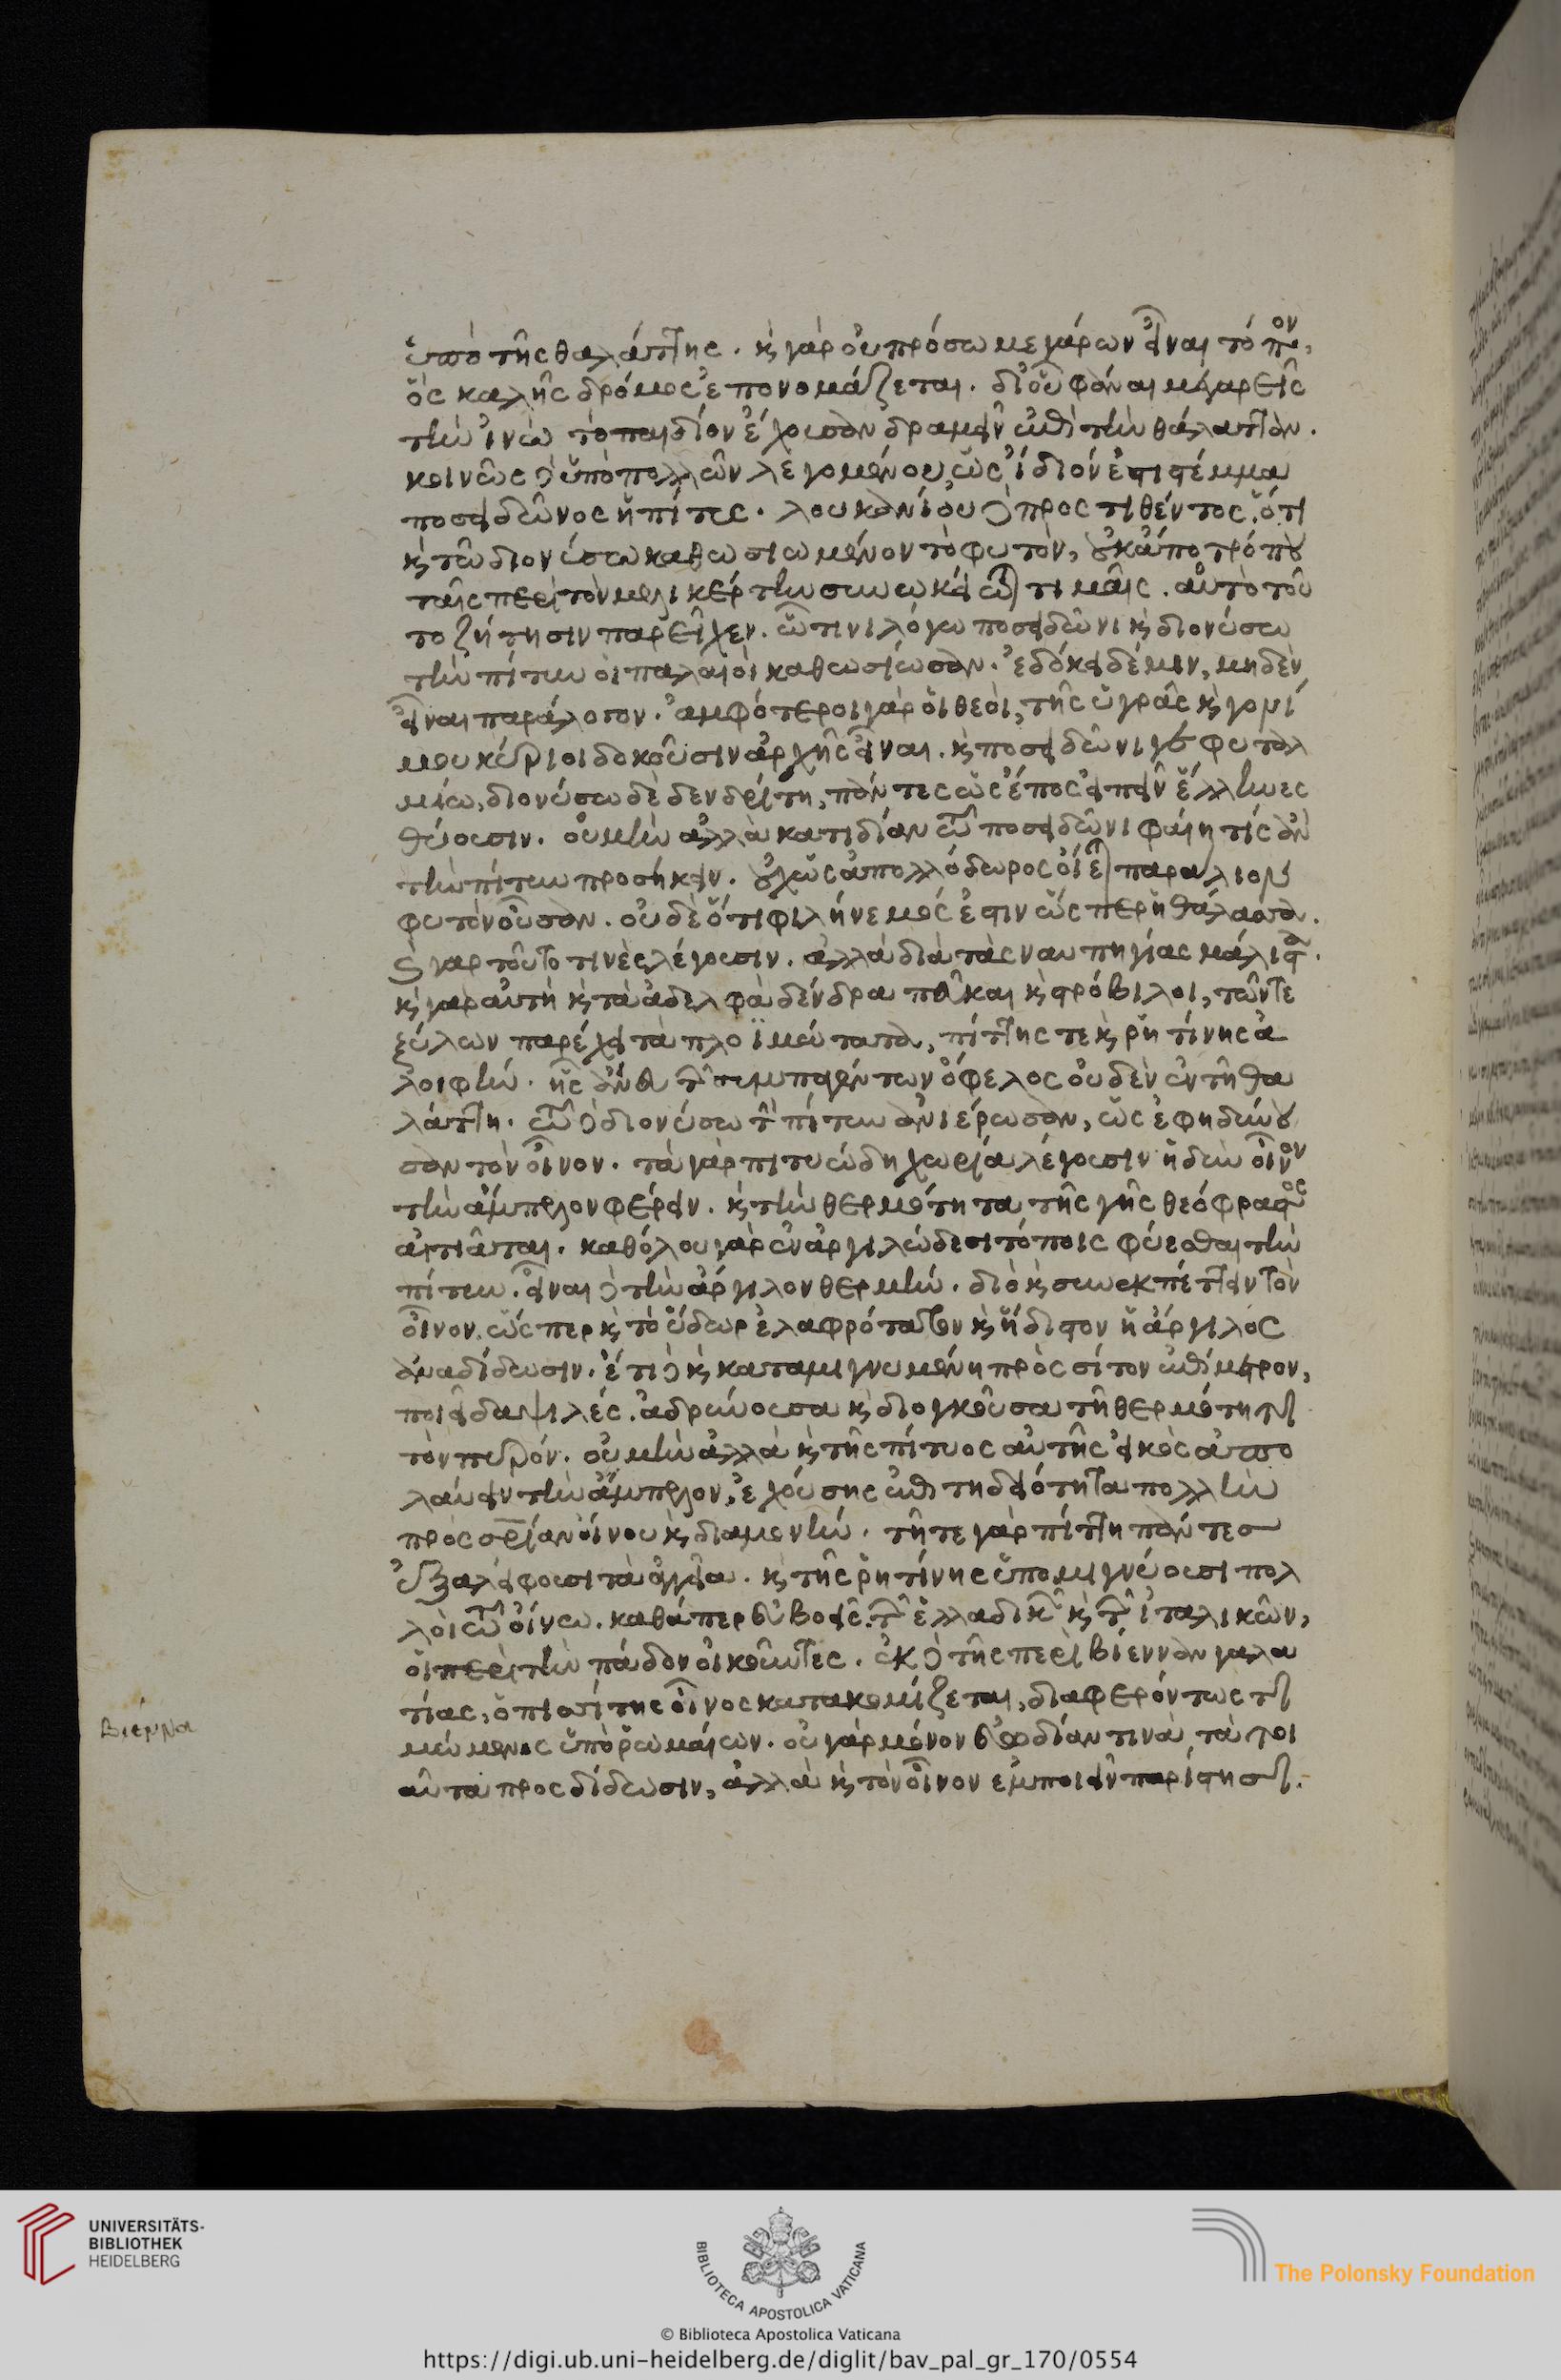 ὑπὸ τῆς θαλάττης. κ̀ γὰρ οὐ πρόσω μεγάρων εἶναι τόπον,
ὃς καλῆς δρόμος ἐπονομάζεται. δι' οὗ φάναι μεγαρεῖς
τὴν ἰνὼ τὸ παιδίον ἔχουσαν δραμεῖν ἐπὶ τὴν θάλατταν.
κοινῶς δ̀ ὑπὸ πολλῶν λεγομένου, ὡς ἴδιόν ἐστι στέμμα
ποσειδῶνος ἡ πίτυς. λουκανίου δ̀ προστιθέντος, ὅτι
κ̀ τῶ διονύσω καθωσιωμένον τὸ φυτὸν, οὐκ ἀπὸ τρόπου
ταῖς περὶ τὸν μελικέρτην συνωκείωται τιμαῖς. αὐτὸ τοῦ
το ζήτησιν παρεῖχεν. ὧτινι λόγω ποσειδῶνι κ̀ διονύσω
τὴν πίτυν οἱ παλαιοὶ καθωσίωσαν. ἐδόκει δέ μιν, μηδὲν
εἶναι παράλογον. ἀμφότεροι γὰρ οἱ θεοὶ, τῆς ὑγρᾶς κ̀ γονί
μου κύριοι δοκοῦσιν ἀρχῆς εἶναι. κ̀ ποσειδῶνι γε φυταλ
μίω, διονύσω δὲ δενδρίτη, πάντες ὡς ἔπος εἰπεῖν ἕλληνες
θύουσιν. οὐ μὴν ἀλλὰ κατιδίαν τῶ ποσειδῶνι φαίη τίς ἂν
τὴν πίτυν προσήκειν. οὐχ ὡς ἀπολλόδωρος οἴεται παράλιον
φυτὸν οὖσαν. οὐδὲ ὅτι φιλήνεμός ἐστιν ὥσπερ ἡ θάλασσα.
κ̀ γὰρ τοῦτο τινὲς λέγουσιν. ἀλλὰ διὰ τὰς ναυπηγίας μάλιστα.
κ̀ γὰρ αὐτὴ κ̀ τὰ ἀδελφὰ δένδρα πεῦκαι κ̀ στρόβιλοι, τῶν τε
ξύλων παρέχει τὰ πλοϊμώτατα, πίττης τε κ̀ ῥητίνης ἀ
λοιφήν. ἧς ἄνευ τῶν συμπαγέντων ὄφελος οὐδὲν ἐν τῆ θα
λάττη. τῶ δ̀ διονύσω τὴν πίτυν ἀνιέρωσαν, ὡς ἐφηδύνου
σαν τὸν οἶνον. τὰ γὰρ πιτυώδη χωρία λέγουσιν ἡδὺν οἶνον
τὴν ἄμπελον φέρειν. κ̀ τὴν θερμότητα τῆς γῆς θεόφραστος
αἰτιᾶται. καθόλου γὰρ ἐν ἀργιλώδεσι τόποις φύεσθαι τὴν
πίτυν. εἶναι δ̀ τὴν ἄργιλον θερμήν. διὸ κ̀ συνεκπέττειν τὸν
οἶνον. ὥσπερ κ̀ τὸ ὕδωρ ἐλαφρότατον κ̀ ἥδιστον ἡ ἄργιλος
ἀναδίδωσιν. ἔτι δ̀ κ̀ καταμιγνυμένη πρὸς σίτον ἐπίμετρον,
ποιεῖ δαψιλές. ἁδρύνουσα κ̀ διογκοῦσα τῆ θερμότητι
τὸν πυρόν. οὐ μὴν ἀλλὰ κ̀ τῆς πίτυος αὐτῆς εἰκὸς ἀπο
λαύειν τὴν ἄμπελον, ἐχούσης ἐπιτηδειότητα πολλὴν
πρὸς σωτηρίαν οἴνου κ̀ διαμονήν. τῆ τε γὰρ πίττη πάντες
ἐξαλείφουσι τὰ ἀγγεῖα. κ̀ τῆς ῥητίνης ὑπομιγνύουσι πολ
λοὶ τῶ οἴνω. καθάπερ εὐβοεῖς. τῶν ἑλλαδικῶν κ̀ τῶν ἰταλικῶν,
οἱ περὶ τὴν πάδον οἰκοῦντες. ἐκ δ̀ τῆς περὶ βίενναν γαλα
τίας, ὁ πισσίτης οἶνος κατακομίζεται, διαφερόντως τι
μώμενος ὑπὸ ῥωμαίων. οὐ γὰρ μόνον εὐωδίαν τινὰ τὰ τοι
αῦτα προςδίδωσιν, ἀλλὰ κ̀ τὸν οἶνον ἐμποιεῖν παρίστησι.
βιέννα
UNIVERSITÄTS-
BIBLIOTHEK
HEIDELBERG
BIBLIOTECA APOSTOLICA VATICANA
The Polonsky Foundation
© Biblioteca Apostolica Vaticana
https://digi.ub.uni-heidelberg.de/diglit/bav_pal_gr_170/0554